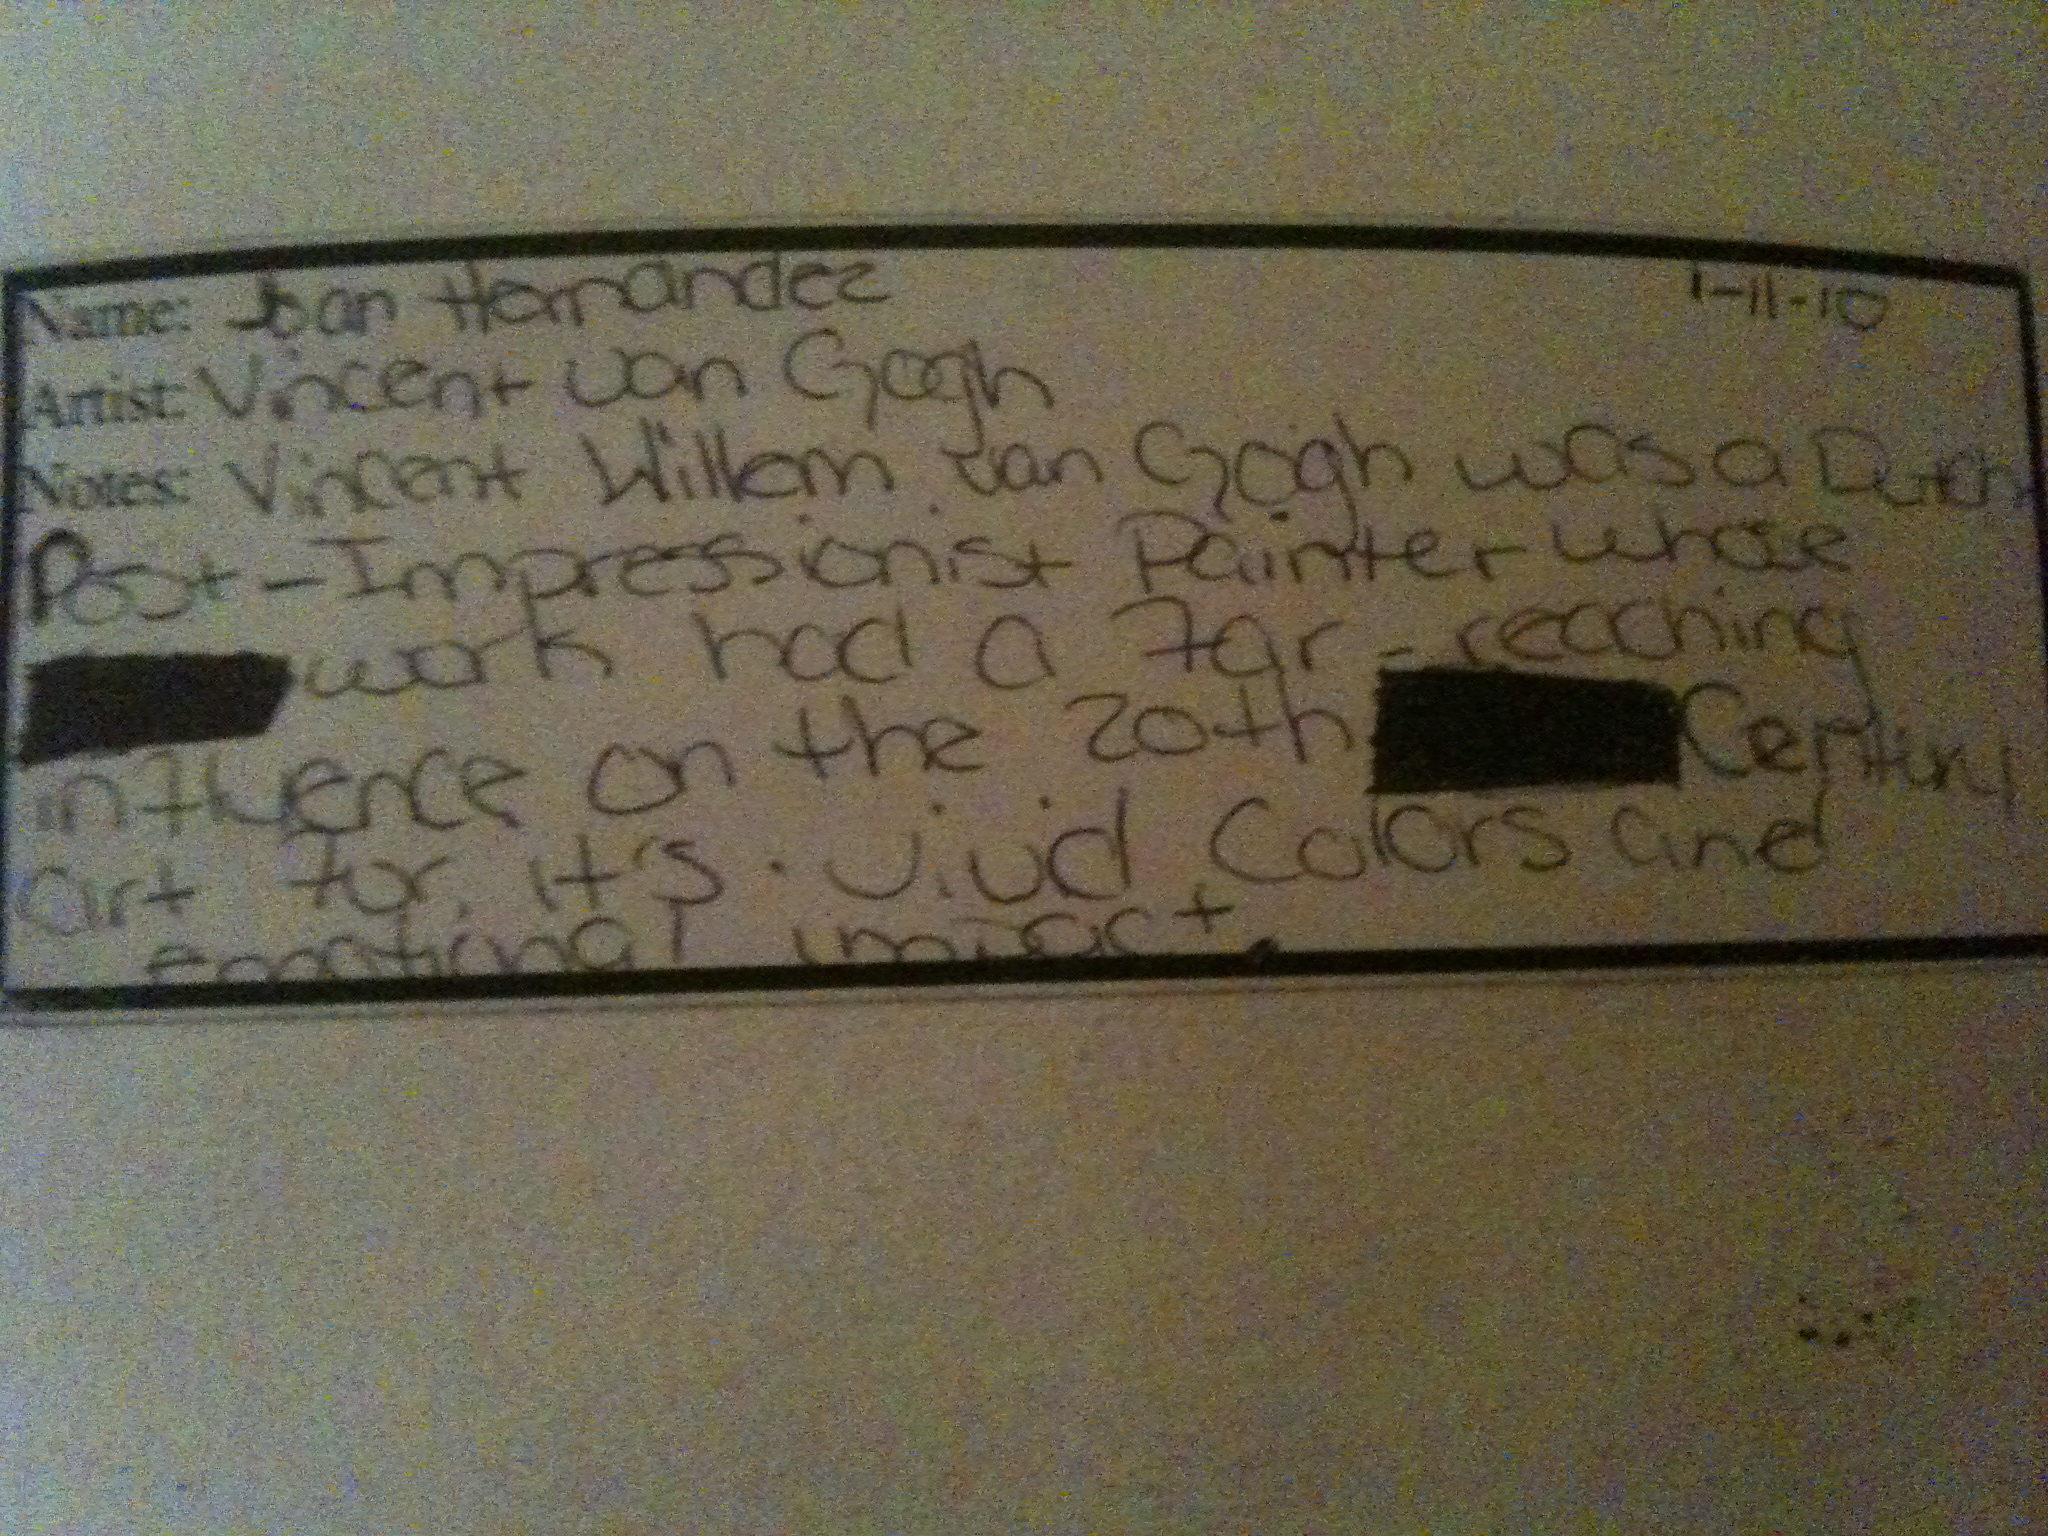 Name: Joan Hernandez 1-11-10
Artist: Vincent van Gogh
Notes: Vincent Willem van Gogh was a Dutch
Post-Impressionist Painter whose
work had a far-reaching
influence on the 20th Century
art for it's vivid Colors and
emotional impact.